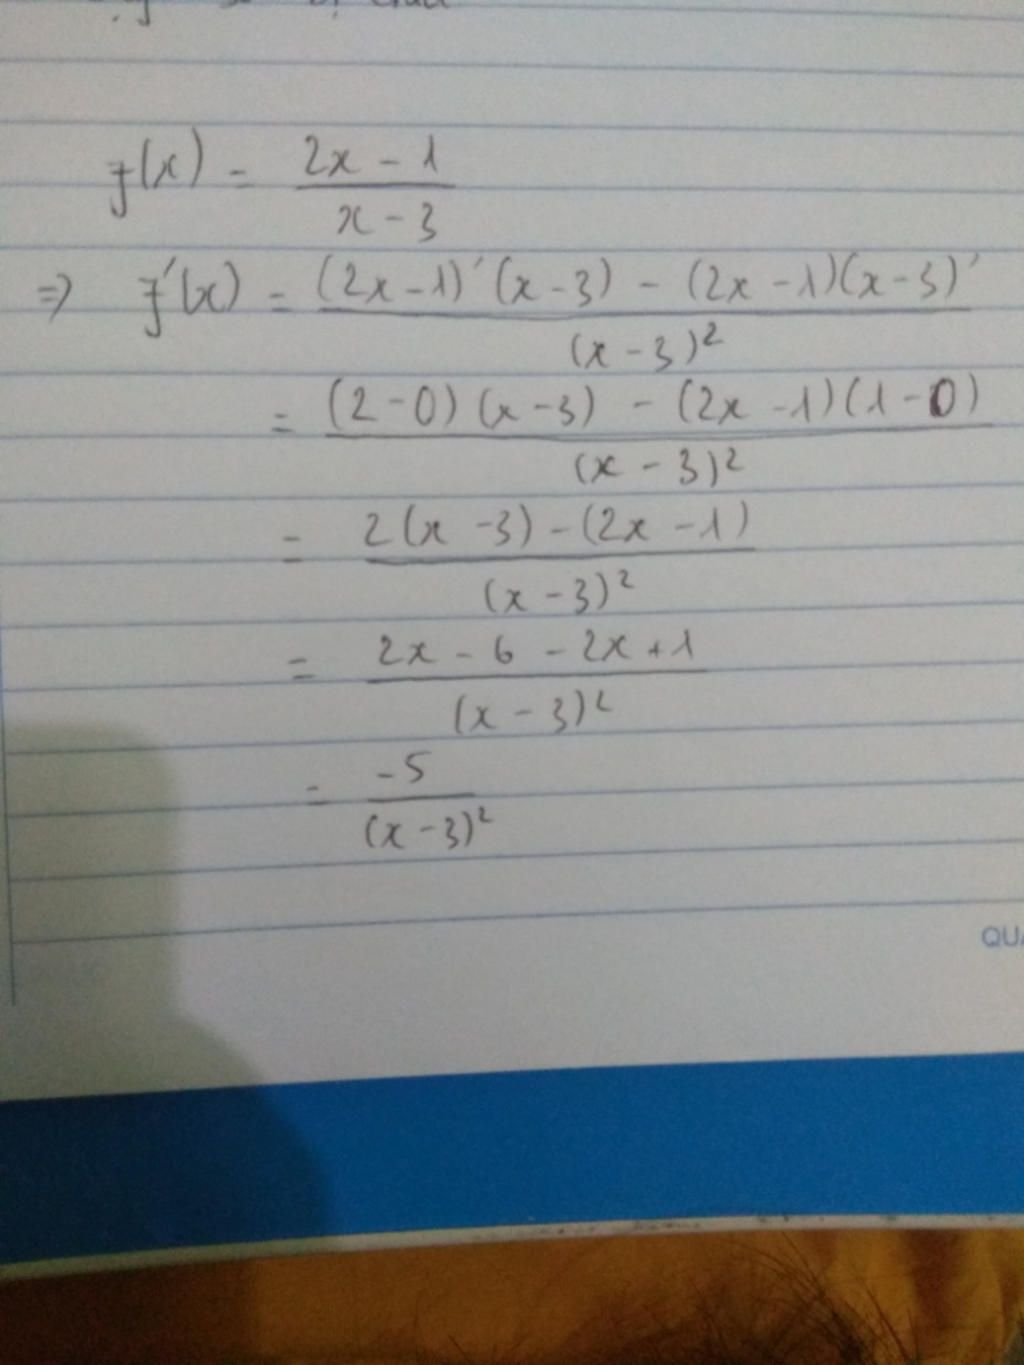 f(x) = (2x - 1) / (x - 3)
=> f'(x) = ((2x - 1)'(x - 3) - (2x - 1)(x - 3)') / (x - 3)²
= ((2 - 0)(x - 3) - (2x - 1)(1 - 0)) / (x - 3)²
= (2(x - 3) - (2x - 1)) / (x - 3)²
= (2x - 6 - 2x + 1) / (x - 3)²
= -5 / (x - 3)²